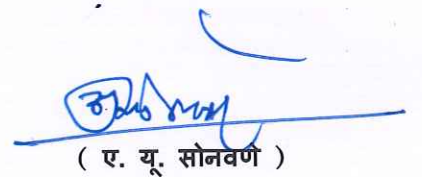 ( ए. यू. सोनवणे )